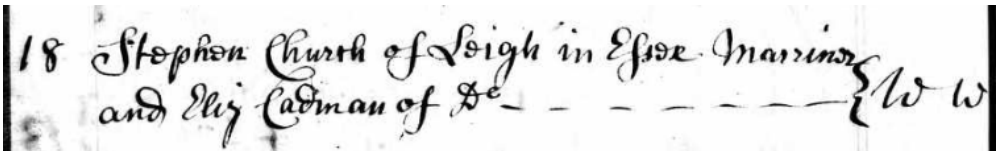 18 Stephen Church of Leigh in Essex Marriner
and Eliz Cadman of Do - - - - - - - } W W